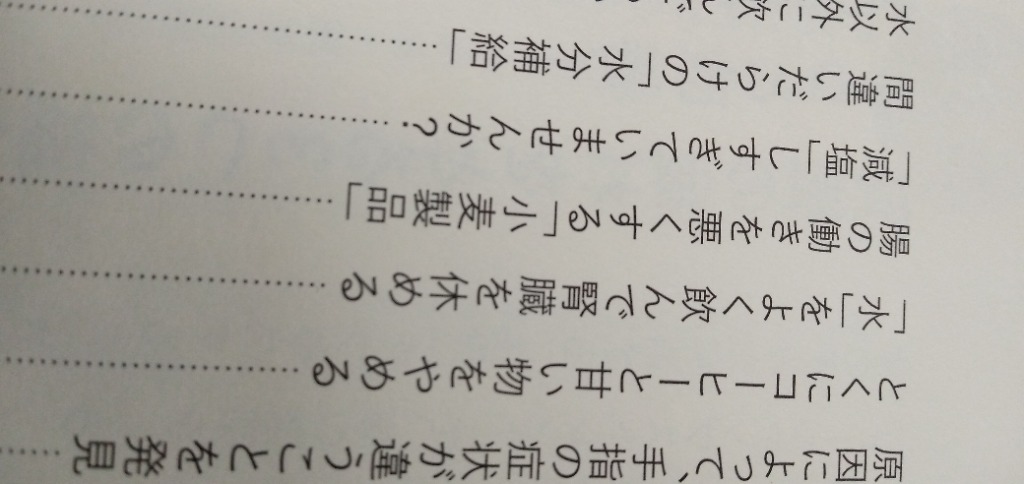 原因によって、手指の症状が違うことを発見
とくにコーヒーと甘い物をやめる
「水」をよく飲んで腎臓を休める
腸の働きを悪くする「小麦製品」
「減塩」しすぎていませんか？
間違いだらけの「水分補給」
水以外に飲んで